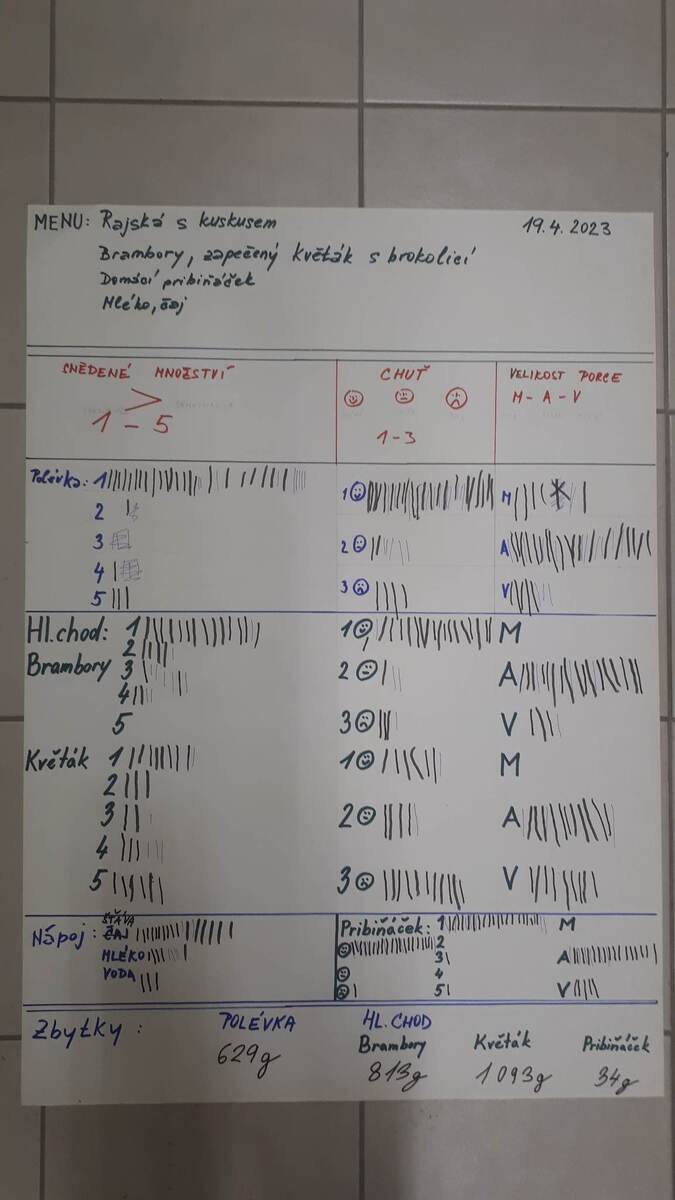 MENU: Rajská s kuskusem 19.4.2023
Brambory, zapečený květák s brokolicí
Domácí pribiňáček
Mléko, čaj
SNĚDENÉ MNOŽSTVÍ CHUŤ VELIKOST PORCE
> M - A - V
1 - 5 1 - 3
Polévka: 1 1 M
2
3 2 A
4
5 3 V
Hl. chod: 1 1 M
2
Brambory 3 2 A
4
5 3 V
Květák 1 1 M
2
3 2 A
4
5 3 V
Nápoj: ŠŤÁVA
ČAJ Pribiňáček: 1 M
MLÉKO 2
3 A
VODA 4
5 V
Zbytky: POLÉVKA HL. CHOD
Brambory Květák Pribiňáček
629g 813g 1093g 34g